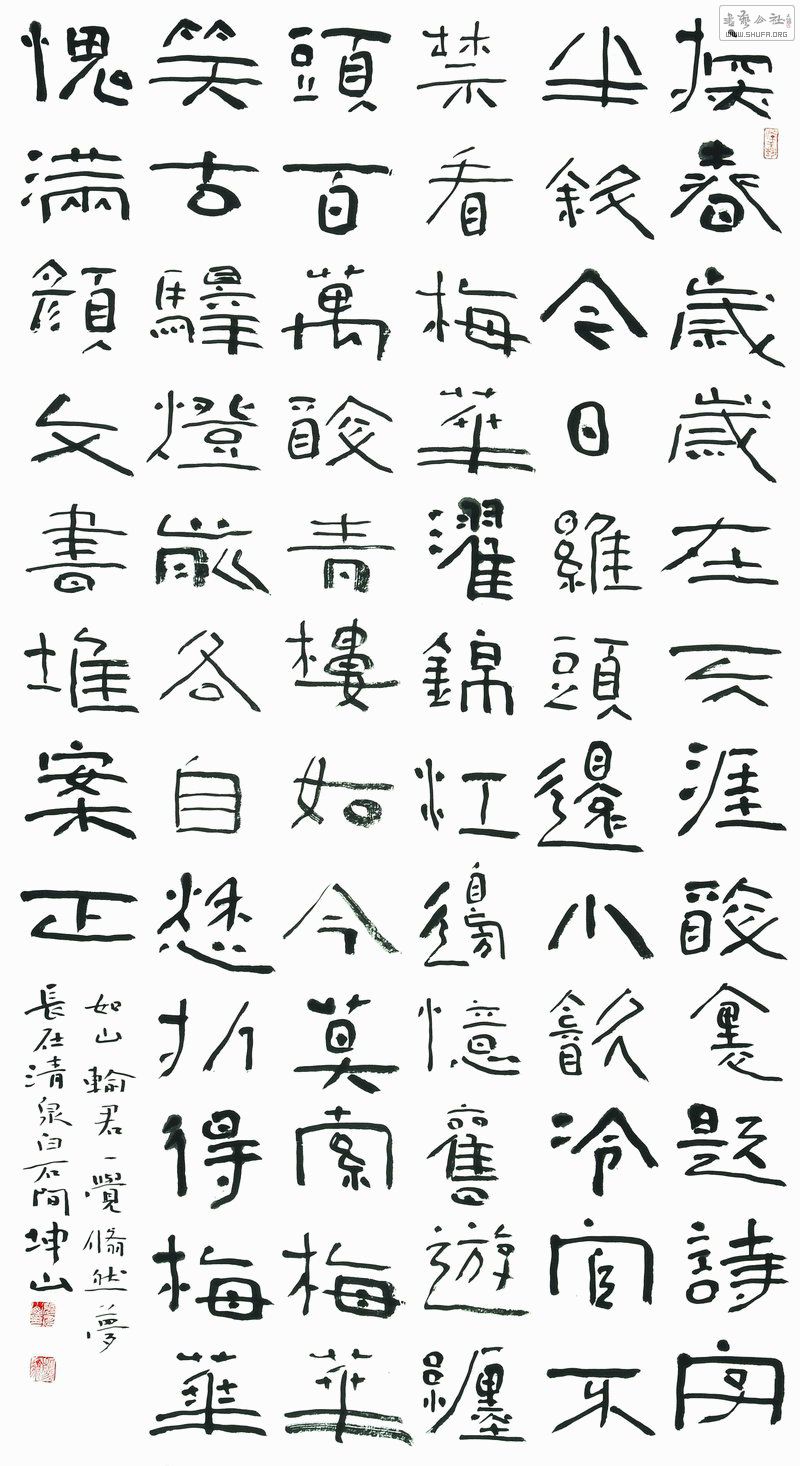 書藝公社
WWW.SHUFA.ORG
探春歲歲在天涯醉裏題詩字
半斜今日維頭還小飲冷官不
禁看梅華濯錦江邊憶舊遊纏
頭百萬醉青樓如今莫索梅華
笑古驛燈前各自愁折得梅華
愧滿顏文書堆案正
如山輸君一覺翛然夢
長在清泉白石間坤山